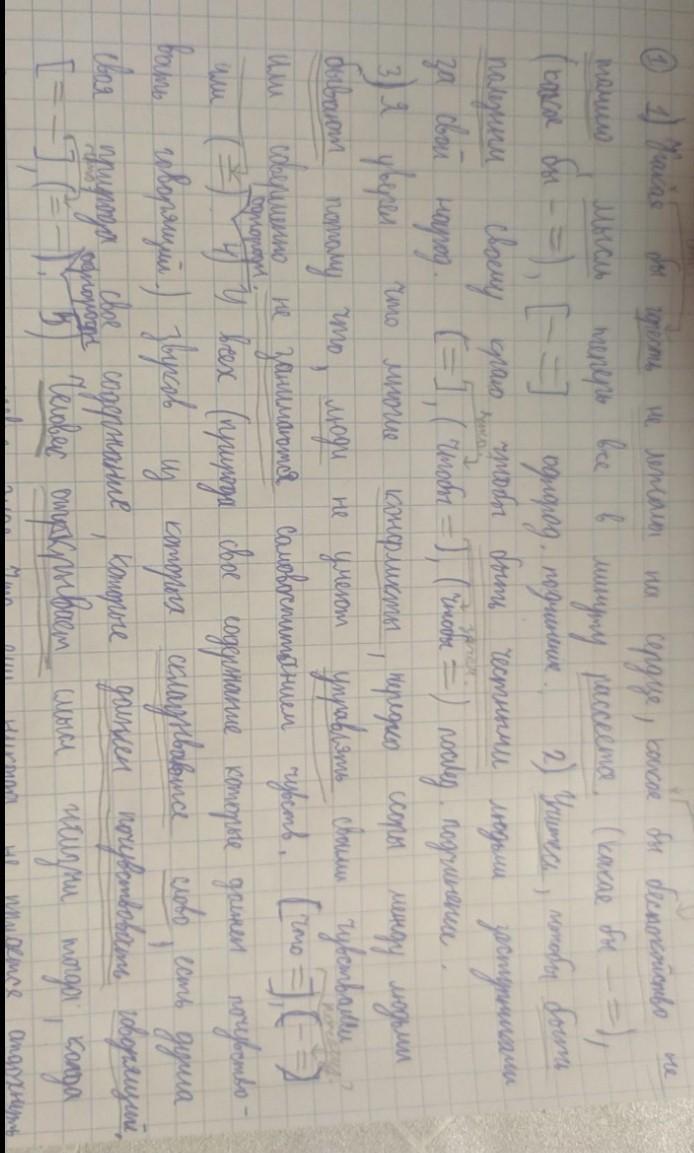 ① 1) Какая бы горесть не лежала на сердце, какое бы беспокойство не
томило мысль теперь все в минуту рассеется. (какая бы – =),
(какое бы – =), [– =] однород. подчинение. 2) Учитесь, чтобы быть
полезными своему краю чтобы быть честными людьми заступниками
за свой народ. [=], (чтобы =), (чтобы =) послед. подчинение.
3) Я уверен что многие конфликты, нередко ссоры между людьми
бывают потому что, люди не умеют управлять своими чувствами
или совершенно не занимаются самовоспитанием чувств. [что =], (– =)
или (=). 4) У всех (природа свое содержание которые должен почувство-
вать говорящий.) Звуков из которых складывается слово, есть душа
своя природа свое содержание, которые должен почувствовать говорящий.
[= –], (= –). 5) Человек открывает смысл жизни тогда, когда